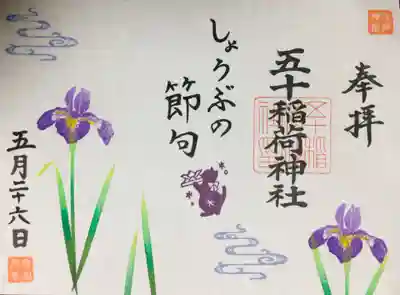 奉拝
五十稲荷神社
しょうぶの
節句
五月二十六日